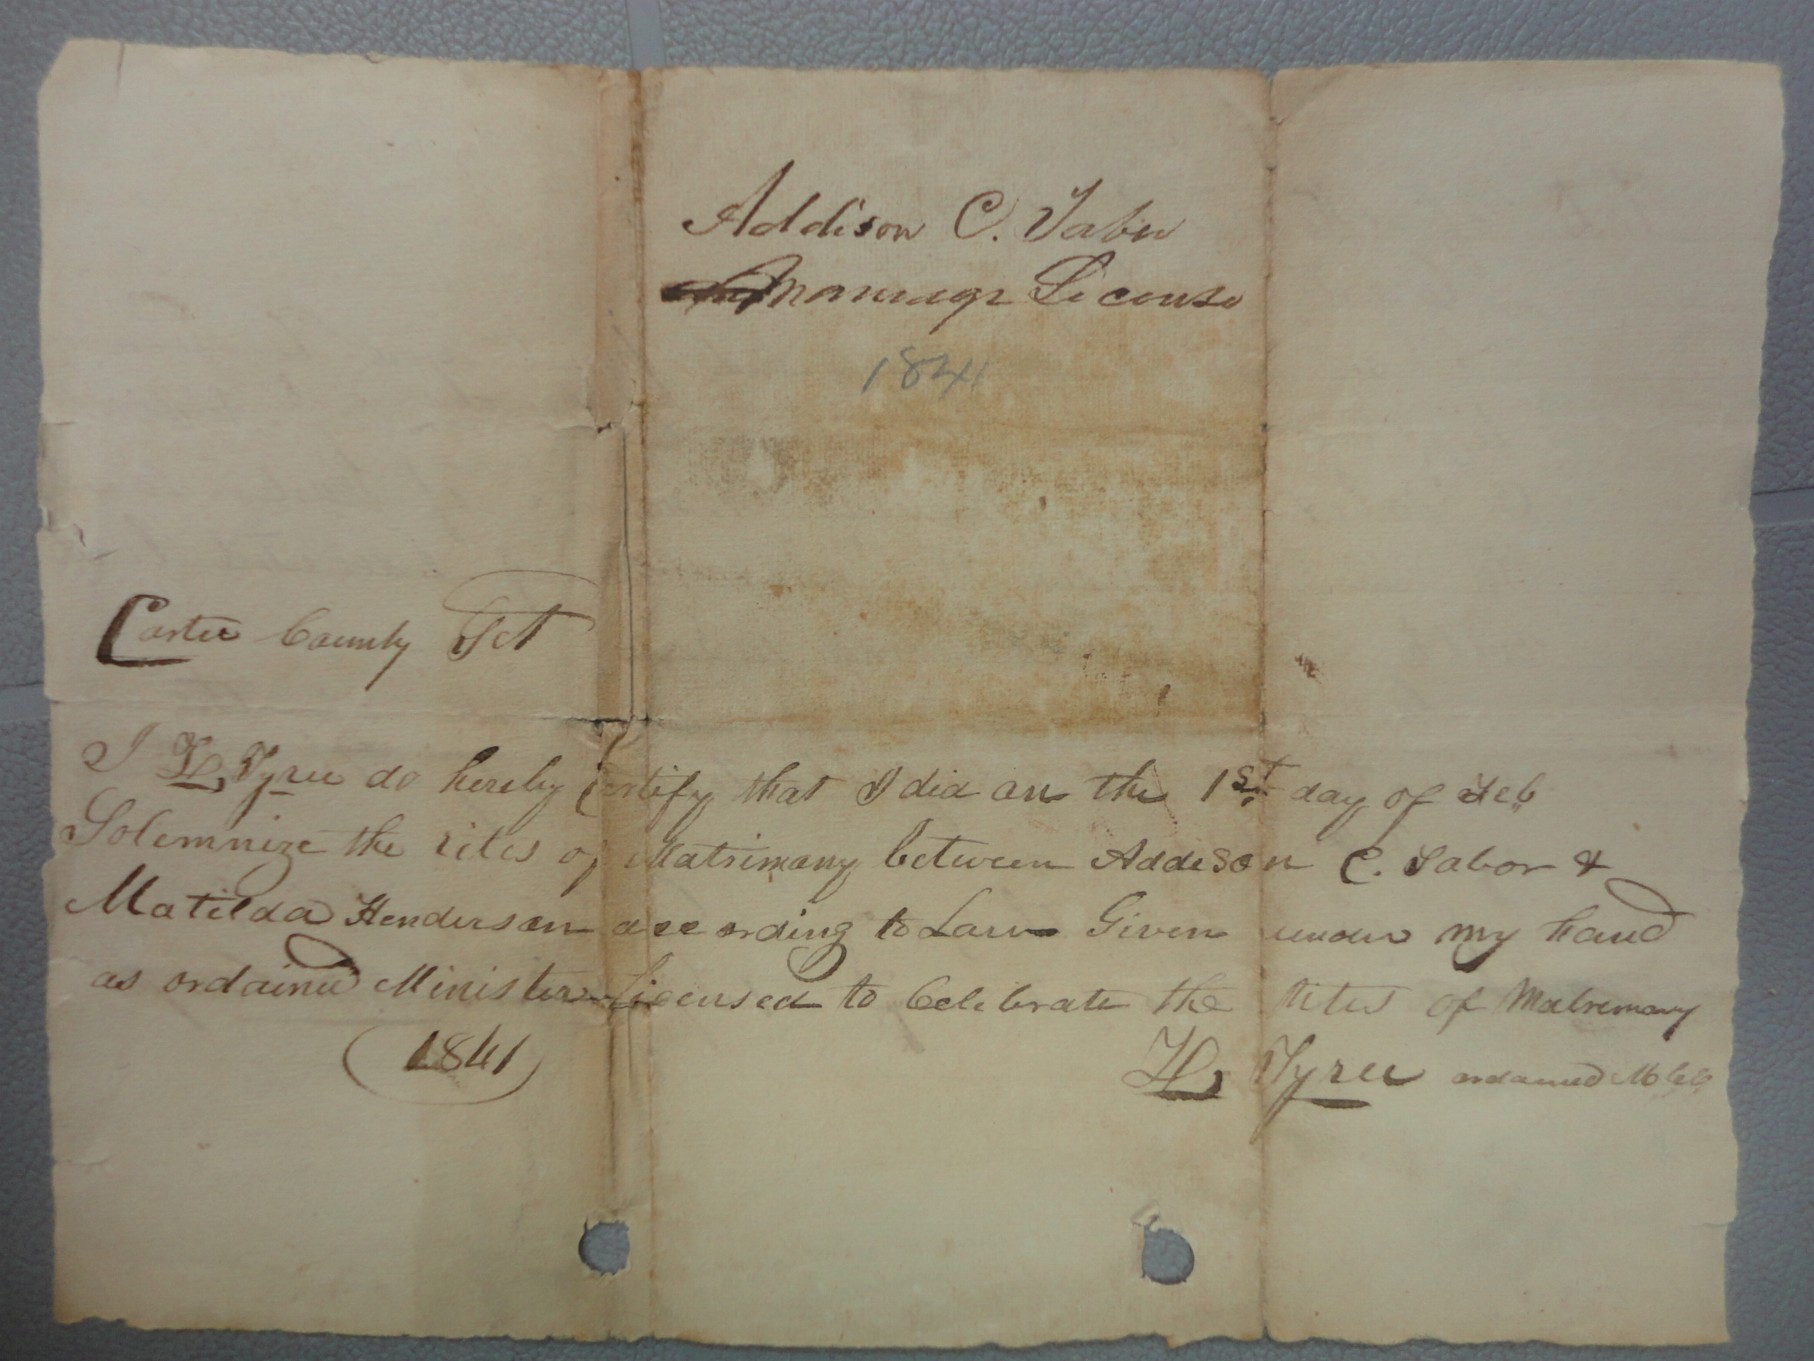 Addison C. Tabor
Marriage License
1841
Carter County Sct
I H Tyree do hereby Certify that I did on the 1st day of Feb
Solemnize the rites of Matrimony between Addison C. Tabor &
Matilda Henderson according to Law Given under my hand
as ordained Minister Licensed to Celebrate the rites of Matremony
1841
H Tyree ordained